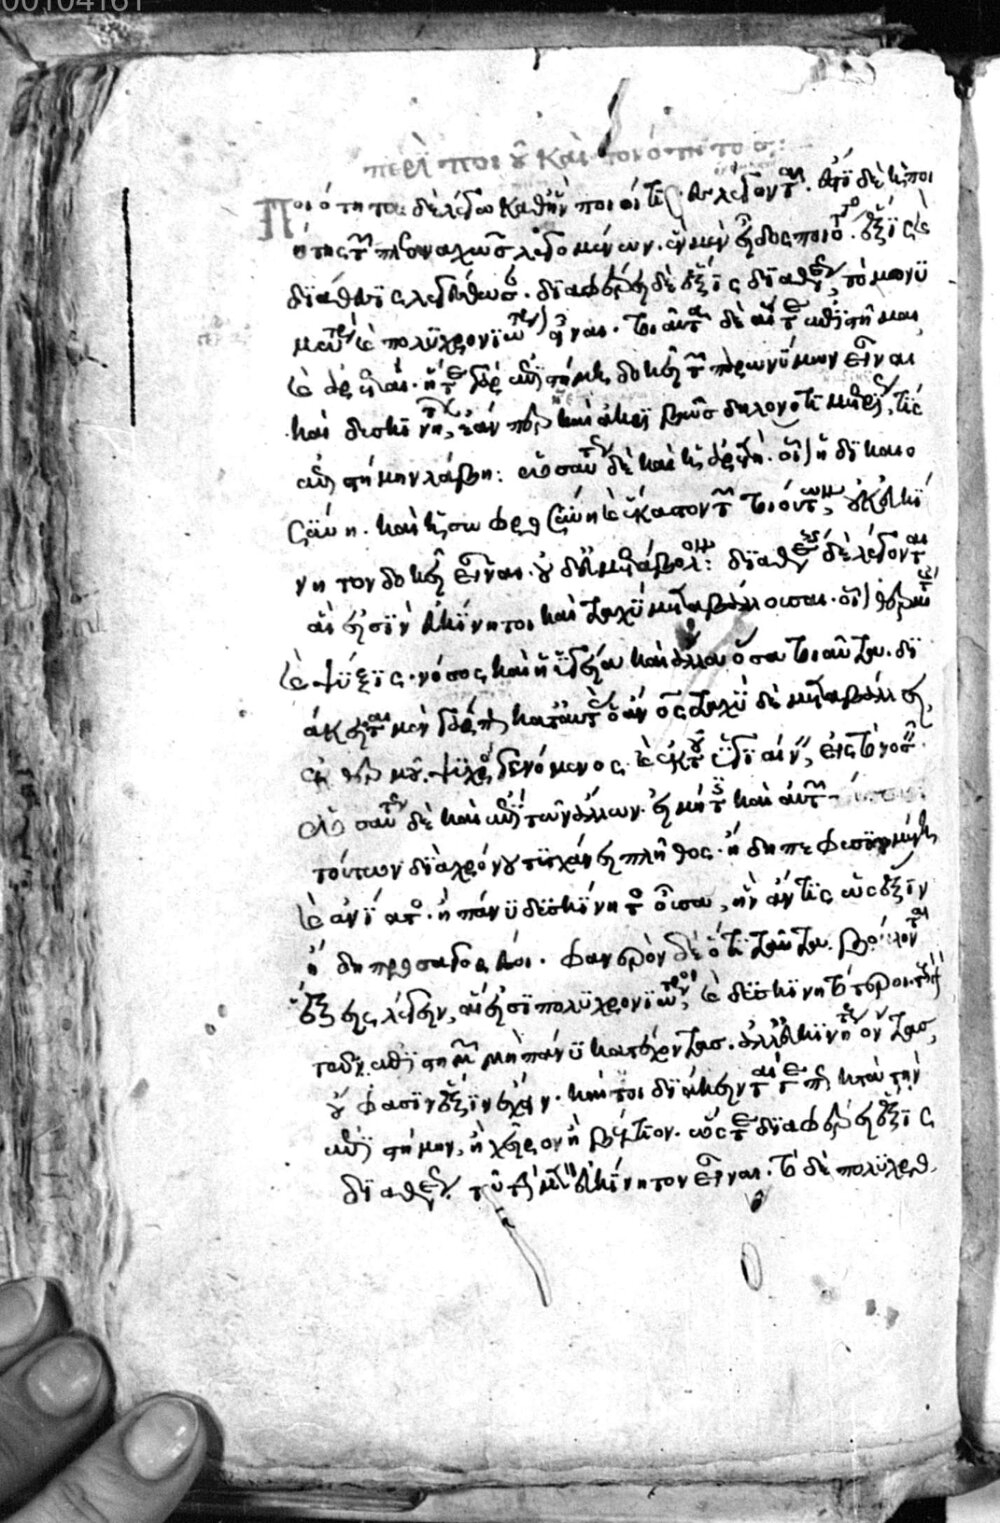 00104161
περὶ ποιοῦ καὶ ποιότητος:
Ποιότητα δὲ λέγω καθ' ἣν ποιοί τινες λέγονται. ἔστι δὲ ἡ ποι
ότης τῶν πλεοναχῶς λεγομένων. ἓν μὲν εἶδος ποιότητος ἕξις καὶ
διάθεσις λεγέσθωσαν. διαφέρει δὲ ἕξις διαθέσεως τὸ μονι
μώτερον καὶ πολυχρονιώτερον εἶναι. τοιαῦται δὲ αἵ τε ἐπιστῆμαι
καὶ ἀρεταί. ἥ τε γὰρ ἐπιστήμη δοκεῖ τῶν παραμονίμων εἶναι
καὶ δυσκινήτων, ἐὰν καὶ μετρίως τις
ἐπιστήμην λάβῃ: ὡσαύτως δὲ καὶ ἡ ἀρετή. οἷον ἡ δικαιο
σύνη. καὶ ἡ σωφροσύνη καὶ ἕκαστον τῶν τοιούτων, οὐκ εὐκί
νητον δοκεῖ εἶναι. οὐδ' εὐμετάβολον: διαθέσεις δὲ λέγονται
αἵ εἰσιν εὐκίνητοι καὶ ταχὺ μεταβάλλουσαι. οἷον θερμότης
καὶ ψύξις. νόσος καὶ ὑγίεια καὶ ἄλλα ὅσα τοιαῦτα. δι
άκειται μὲν γάρ πως κατὰ ταύτας ὁ ἄνθρωπος ταχὺ δὲ μεταβάλλει
ἐκ θερμοῦ ψυχρὸς γενόμενος. καὶ ἐκ τοῦ ὑγιαίνειν εἰς τὸ νοσεῖν.
ὡσαύτως δὲ καὶ ἐπὶ τῶν ἄλλων. εἰ μή τις καὶ αὐτῶν
τούτων διὰ χρόνου πλῆθος. ἤδη πεφυσιωμένη
καὶ ἀνίατος. ἢ πάνυ δυσκίνητος οὖσα, ἣν ἄν τις ὡς ἕξιν
ἤδη προσαγορεύοι. φανερὸν δὲ ὅτι ταῦτα βούλονται
ἕξεις λέγειν, ἅ εἰσι πολυχρονιώτερα καὶ δυσκινητότεροι.
τοὺς γὰρ τῶν ἐπιστημῶν μὴ πάνυ κατέχοντας. ἀλλ' εὐκινήτους ὄντας,
οὔ φασιν ἕξιν ἔχειν. καίτοι διάκεινταί γέ πως κατὰ τὴν
ἐπιστήμην, ἢ χεῖρον ἢ βέλτιον. ὥστε διαφέρει ἕξις
διαθέσεως τῷ τὴν μὲν εὐκίνητον εἶναι. τὸ δὲ πολυχρο